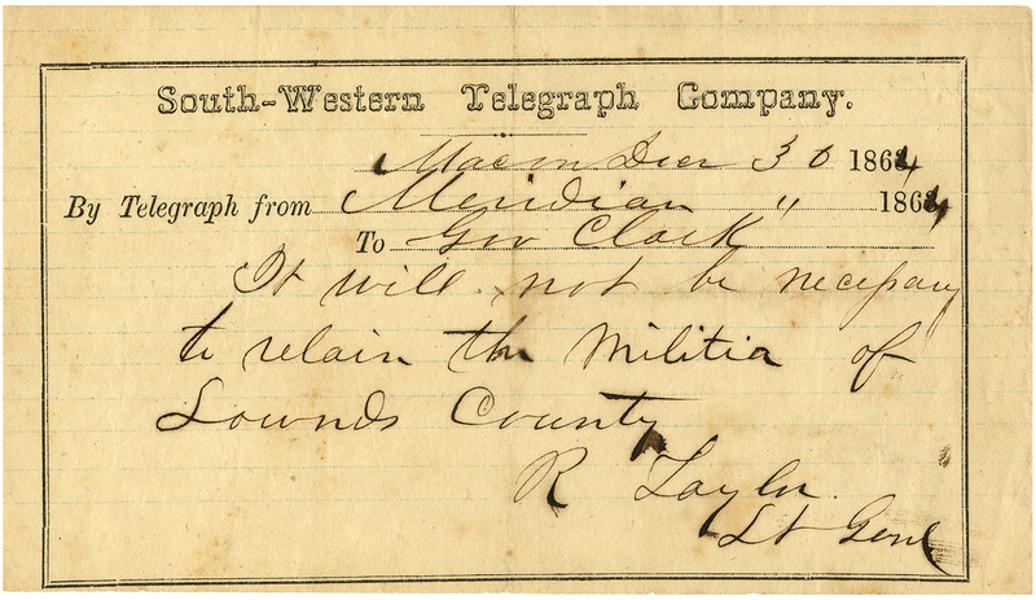 South-Western Telegraph Company.
Macon Decr 30 1864
By Telegraph from Meridian " 1864
To Gov Clark
It will not be necessary
to retain the Militia of
Lownds County
R Taylor
Lt Genl